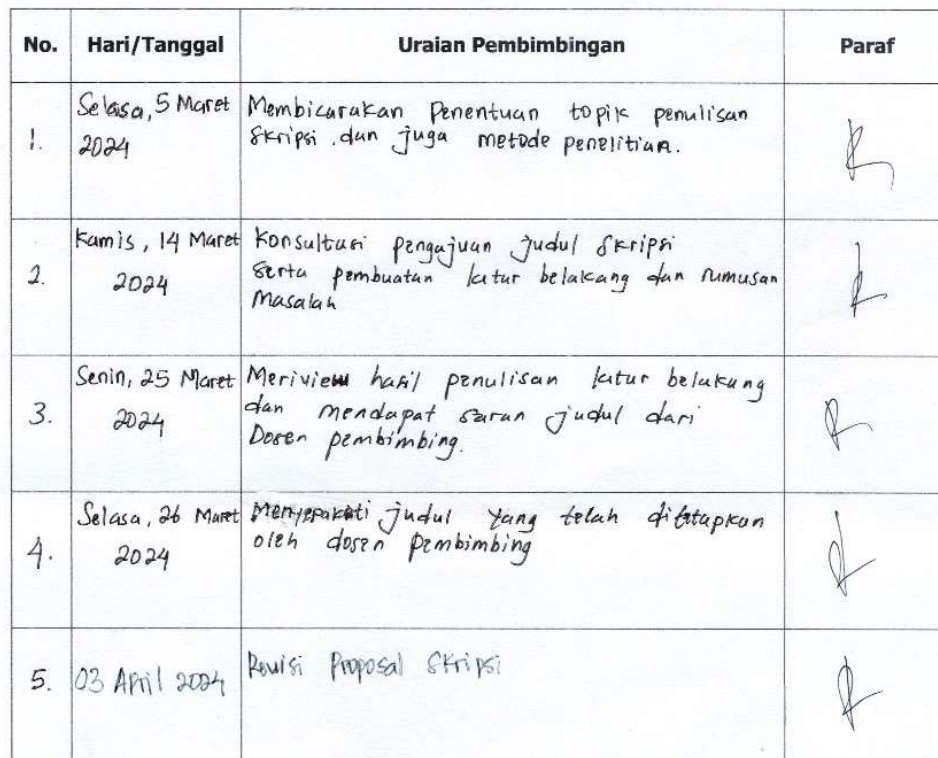 No. Hari/Tanggal Uraian Pembimbingan Paraf
1. Selasa, 5 Maret 2024 Membicarakan Penentuan topik penulisan
Skripsi dan juga metode penelitian.
2. Kamis, 14 Maret 2024 Konsultasi pengajuan judul Skripsi
serta pembuatan latar belakang dan rumusan
Masalah
3. Senin, 25 Maret 2024 Meriview hasil penulisan latar belakang
dan mendapat saran judul dari
Dosen pembimbing.
4. Selasa, 26 Maret 2024 Menyepakati judul yang telah ditetapkan
oleh dosen pembimbing
5. 03 April 2024 Revisi Proposal Skripsi